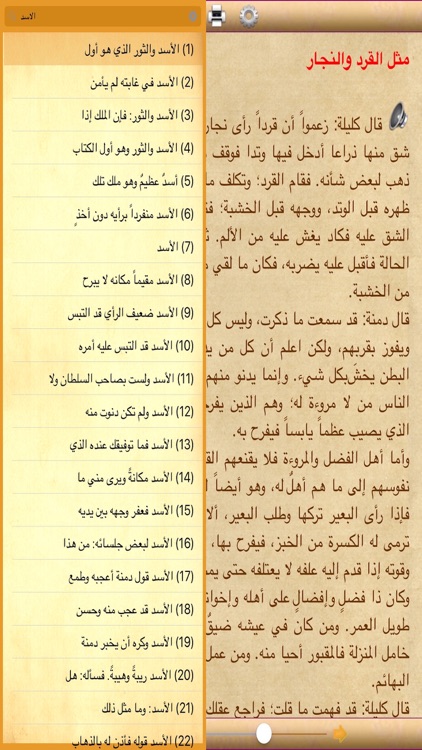 الاسد
(1) الأسد والثور الذي هو أول
(2) الأسد في غابته لم يأمن
(3) الأسد والثور: فإن الملك إذا
(4) الأسد والثور وهو أول الكتاب
(5) أسدٌ عظيمٌ وهو ملك تلك
(6) الأسد منفرداً برأيه دون أخذٍ
(7) الأسد
(8) الأسد مقيماً مكانه لا يبرح
(9) الأسد ضعيف الرأي قد التبس
(10) الأسد قد التبس عليه أمره
(11) الأسد ولست بصاحب السلطان ولا
(12) الأسد ولم تكن دنوت منه
(13) الأسد فما توفيقك عنده الذي
(14) الأسد مكانةً ويرى مني ما
(15) الأسد فعفر وجهه بين يديه
(16) الأسد لبعض جلسائه: من هذا
(17) الأسد قول دمنة أعجبه وطمع
(18) الأسد قد عجب منه وحسن
(19) الأسد وكره أن يخبر دمنة
(20) الأسد ريبةً وهيبةً. فسأله: هل
(21) الأسد: وما مثل ذلك
(22) الأسد قوله فأذن له بالذهاب
مثل القرد والنجار
قال كليلة: زعموا أن قرداً رأى نجار
شق منها ذراعا أدخل فيها وتدا فوقف
ذهب لبعض شأنه. فقام القرد؛ وتكلف ما
ظهره قبل الوتد، ووجهه قبل الخشبة؛
الشق عليه فكاد يغش عليه من الألم.
الحالة فأقبل عليه يضربه، فكان ما لقي
من الخشبة.
قال دمنة: قد سمعت ما ذكرت، وليس كل
ويفوز بقربهم، ولكن اعلم أن كل من
البطن يخش‌َبكل شيء. وإنما يدنو منهم
الناس من لا مروءة له؛ وهم الذين
الذي يصيب عظماً يابساً فيفرح به.
وأما أهل الفضل والمروءة فلا يقنعهم
نفوسهم إلى ما هم أهلٌ له، وهو أيضاً
فإذا رأى البعير تركها وطلب البعير،
ترمى له الكسرة من الخبز، فيفرح بها،
وقوته إذا قدم إليه علفه لا يعتلفه حتى
وكان ذا فضلٍ وإفضالٍ على أهله
طويل العمر. ومن كان في عيشه ضيقٌ
خامل المنزلة فالمقبور أحيا منه. ومن عمل
البهائم.
قال كليلة: قد فهمت ما قلت؛ فراجع عقلك